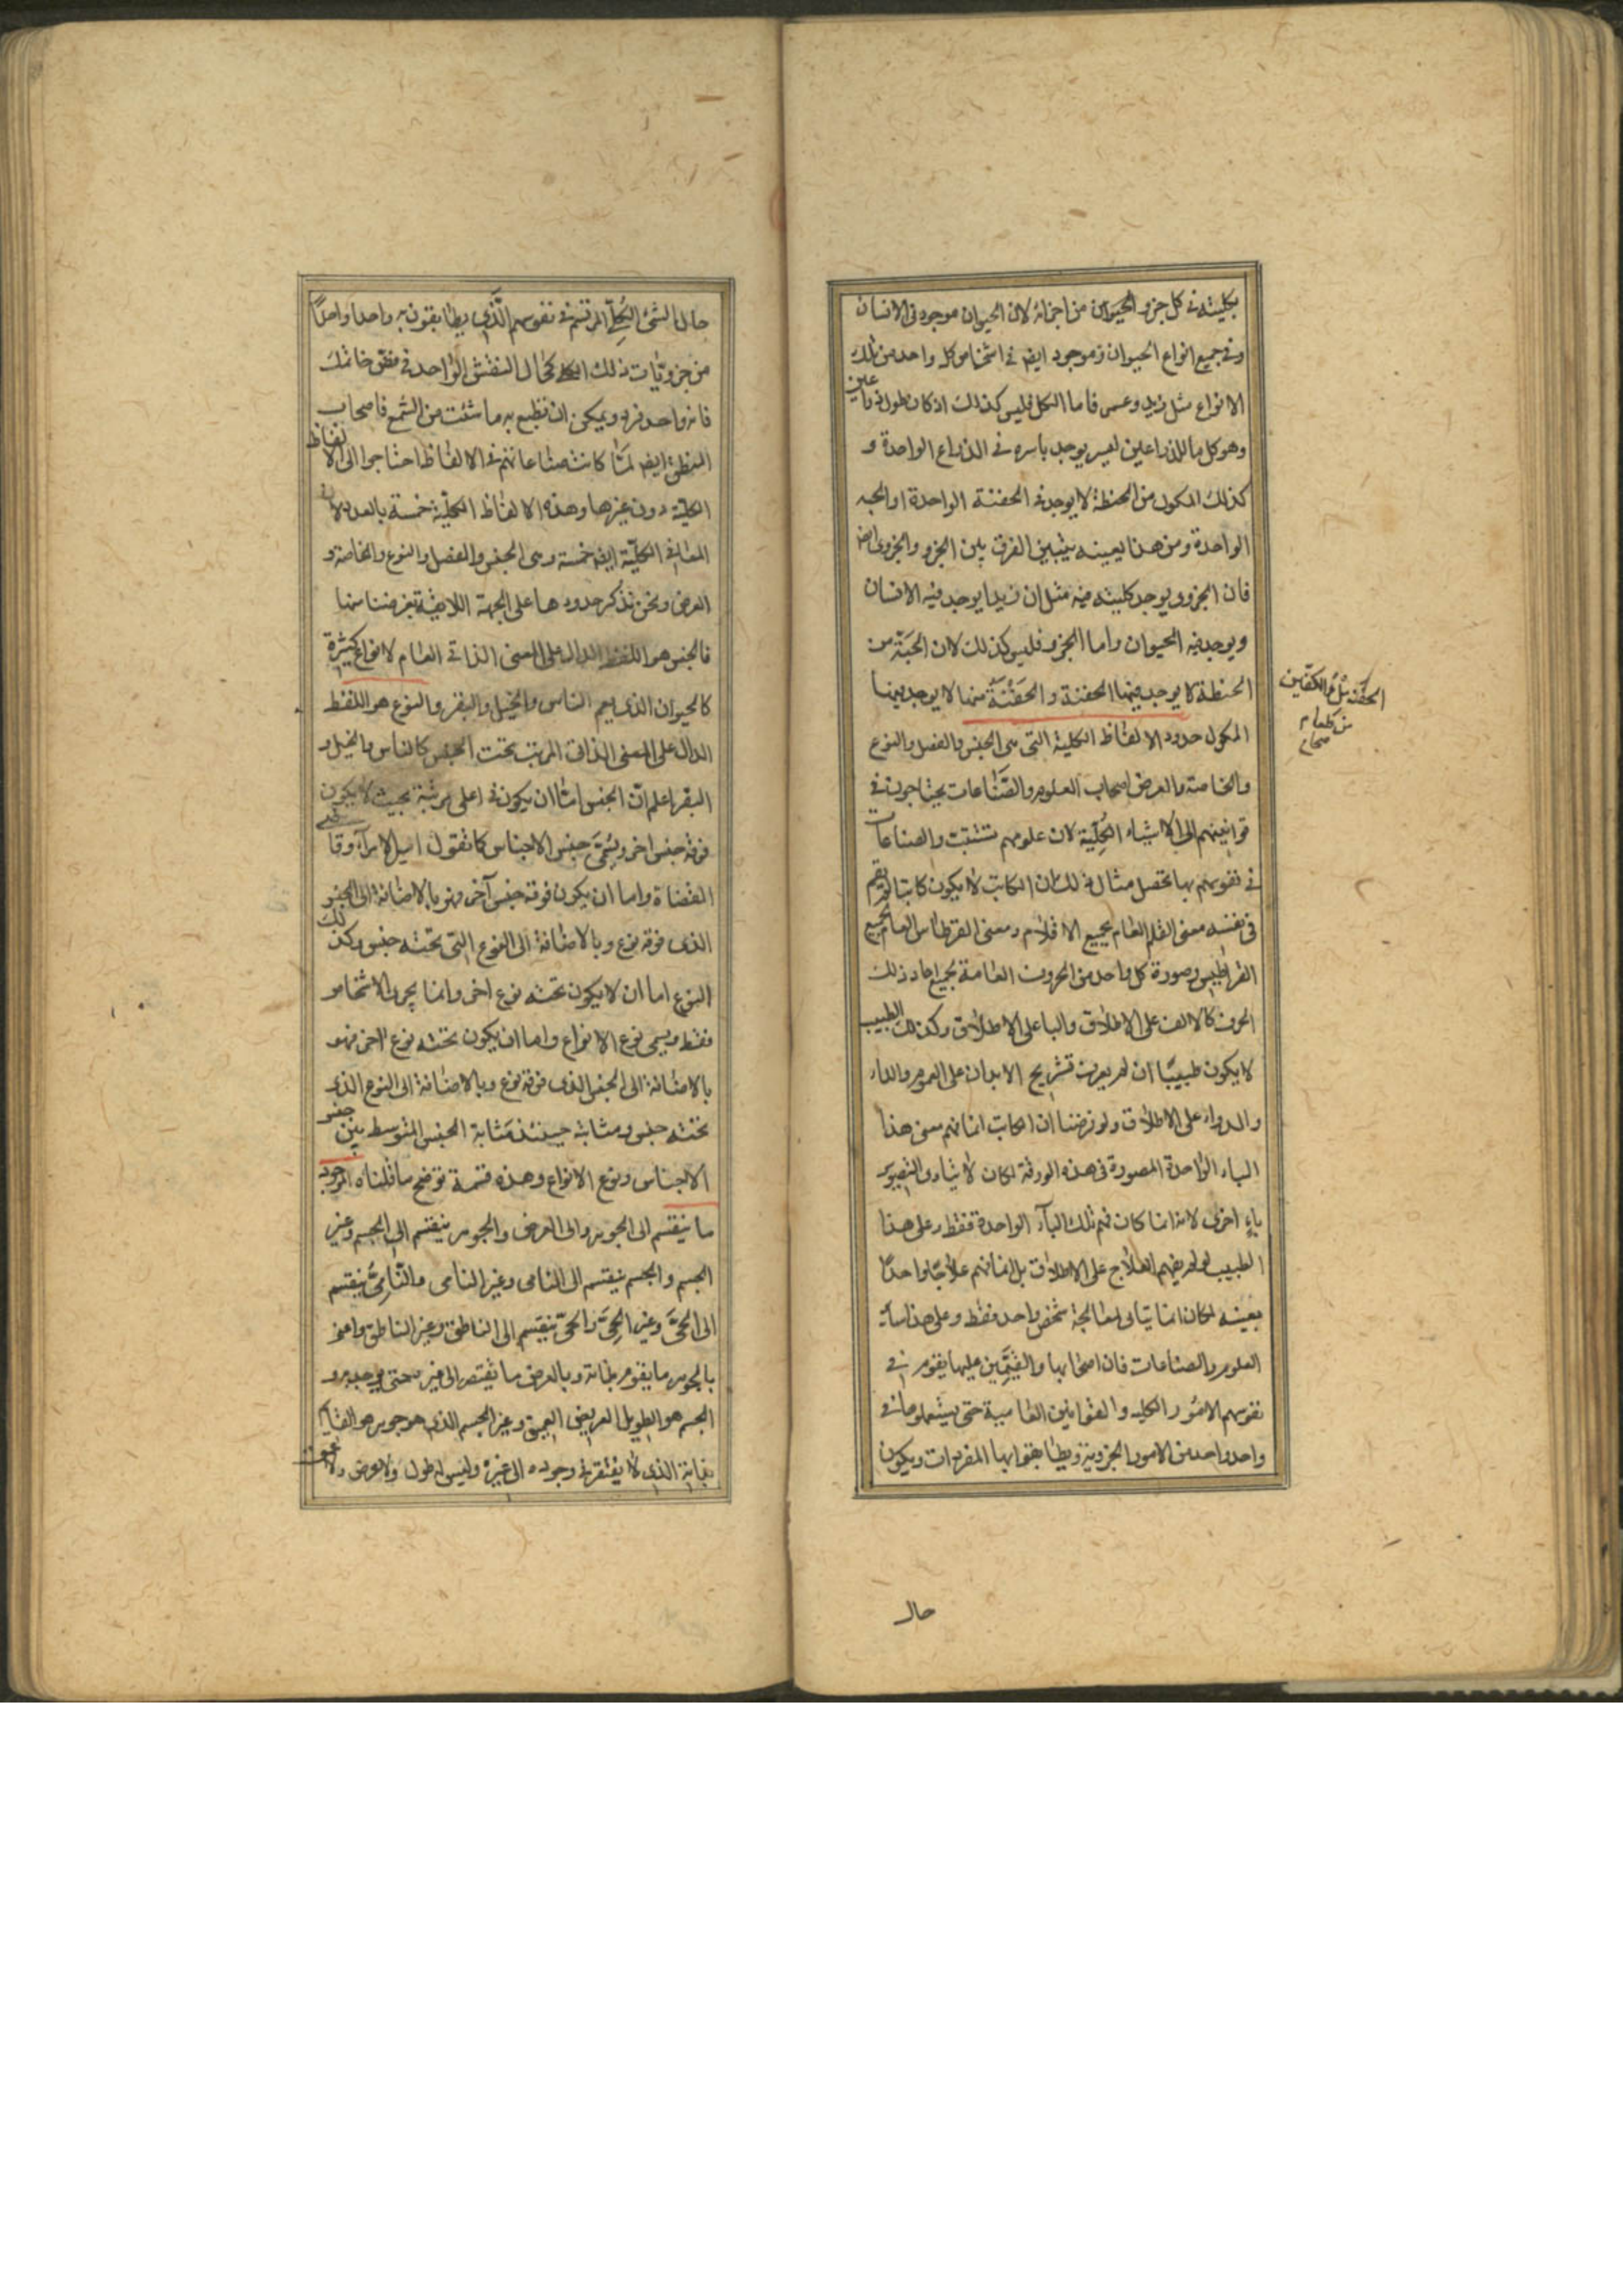 بكليته في كل جزو الحيوان من اجزائه لان الحيوان موجود في الانسان
وفي جميع انواع الحيوان وموجود ايضا في اشخاص كل واحد من تلك
الانواع مثل زيد وعمرو فاما الكل فليس كذلك اذ كان طوله ذراعين
وهو كل ما للذراعين ليس يوجد باسره في الذراع الواحدة و
كذلك المكول من الحنطة لا يوجد في الحفنة الواحدة او الحبه
الواحدة ومن هذا بعينه يتبين الفرق بين الجزو والجزوى ايضا
فان الجزوى يوجد كليته فيه مثل ان زيدا يوجد فيه الانسان
ويوجد فيه الحيوان واما الجزو فليس كذلك لان الحبّة من
الحنطة لا يوجد فيها الحفنة والحَفْنَة منها لا يوجد فيها
المكول حدود الالفاظ الكلية التي هي الجنس والفصل والنوع
والخاصة والعرض اصحاب العلوم والصّناعات يحتاجون في
قوانينهم الى الاشياء الكُلّية لان علومهم تثبت والصناعات
في نفوسهم بها تحصل مثال ذلك ان الكاتب لا يكون كاتبا لو لم يقم
في نفسه معنى القلم العام لجميع الاقلام ومعنى القرطاس العام لجميع
القراطيس وصورة كل واحد من الحروف العامة لجميع احاد ذلك
الحرف كالالف على الاطلاق والبا على الاطلاق وكذلك الطبيب
لا يكون طبيبًا ان لم يعرف تشريح الابدان على العموم والداء
والدواء على الاطلاق ولو فرضنا ان الكاتب انما فهم معنى هذا
الباء الواحدة المصورة في هذه الورقة لكان لا يتأدى لتصوير
باءٍ اخرى لانه انما كان فهم تلك الباء الواحدة فقط وعلى هذا
الطبيب لو لم يفهم العلاج على الاطلاق بل انما فهم علاجًا واحدًا
بعينه لكان انما يتأتى لمعالجة شخص واحد فقط وعلى هذا سائر
العلوم والصناعات فان اصحابها والقَيِّمين عليها يقوم في
نفوسهم الامور الكليه والقوانين القاسية حتى يستعملوها في
واحد واحد من الامور الجزوية ويطابقوا بها المفردات ويكون
الحَفْنَة مِلْءُ الكفّين
من طعام
صحاح
حال
حال الشئ الكُلّي المرتسم في نفوسهم الّذي يطابقون به واحدا واحدًا
من جزويّات ذلك الكلي كحال النقش الواحد في فص خاتمك
فانه واحد فرد ويمكن ان تطبع به ما شئت من الشمع فاصحاب
المنطق ايضا لمّا كانت صناعاتهم في الالفاظ احتاجوا الى الالفاظ
الكليّة دون غيرها وهذه الالفاظ الكليّة خمسة بالعدد لان
المعاني الكليّة ايضا خمسة وهي الجنس والفصل والنوع والخاصة و
العرض ونحن نذكر حدودها على الجهة اللايقة بغرضنا منها
فالجنس هو اللفظ الدال على المعنى الذاتي العام لانواع كثيرة
كالحيوان الذي يعم الناس والخيل والبقر والنوع هو اللفظ
الدال على المعنى الذاتي المرتب تحت الجنس كالناس والخيل و
البقر اعلم انّ الجنس امّا ان يكون في اعلى مرتبة بحيث لا يكون
فوقه جنس اخر ويسمّى جنس الاجناس كما تقول امير الامراء وقاضي
القضاة واما ان يكون فوقه جنس آخر فهو بالاضافة الى الجنس
الذي فوقه نوع وبالاضافة الى النوع التي تحته جنس وكذلك
النوع اما ان لا يكون تحته نوع اخر وانما يحوى الاشخاص
فقط ويسمى نوع الانواع واما ان يكون تحته نوع اخر فهو
بالاضافة الى الجنس الذي فوقه نوع وبالاضافة الى النوع الذي
تحته جنس ومثابته حينئذ مَثابة الجنس المتوسط بين جنس
الاجناس ونوع الانواع وهذه قسمة توضح ما قلناه الموجود
ما ينقسم الى الجوهر والى العرض والجوهر ينقسم الى الجسم وغير
الجسم والجسم ينقسم الى النامى وغير النامى والنّامِىُّ ينقسم
الى الحىّ وغير الحىّ والحىّ ينقسم الى الناطق وغير الناطق واعنى
بالجوهر ما يقوم بذاته وبالعرض ما يفتقر الى غيره حتى يوجد به و
الجسم هو الطويل العريض العميق وغير الجسم الذي هو جوهر هو القائم
بذاته الذي لا يفتقر في وجوده الى غيره وليس له طول ولا عرض ولا عمق